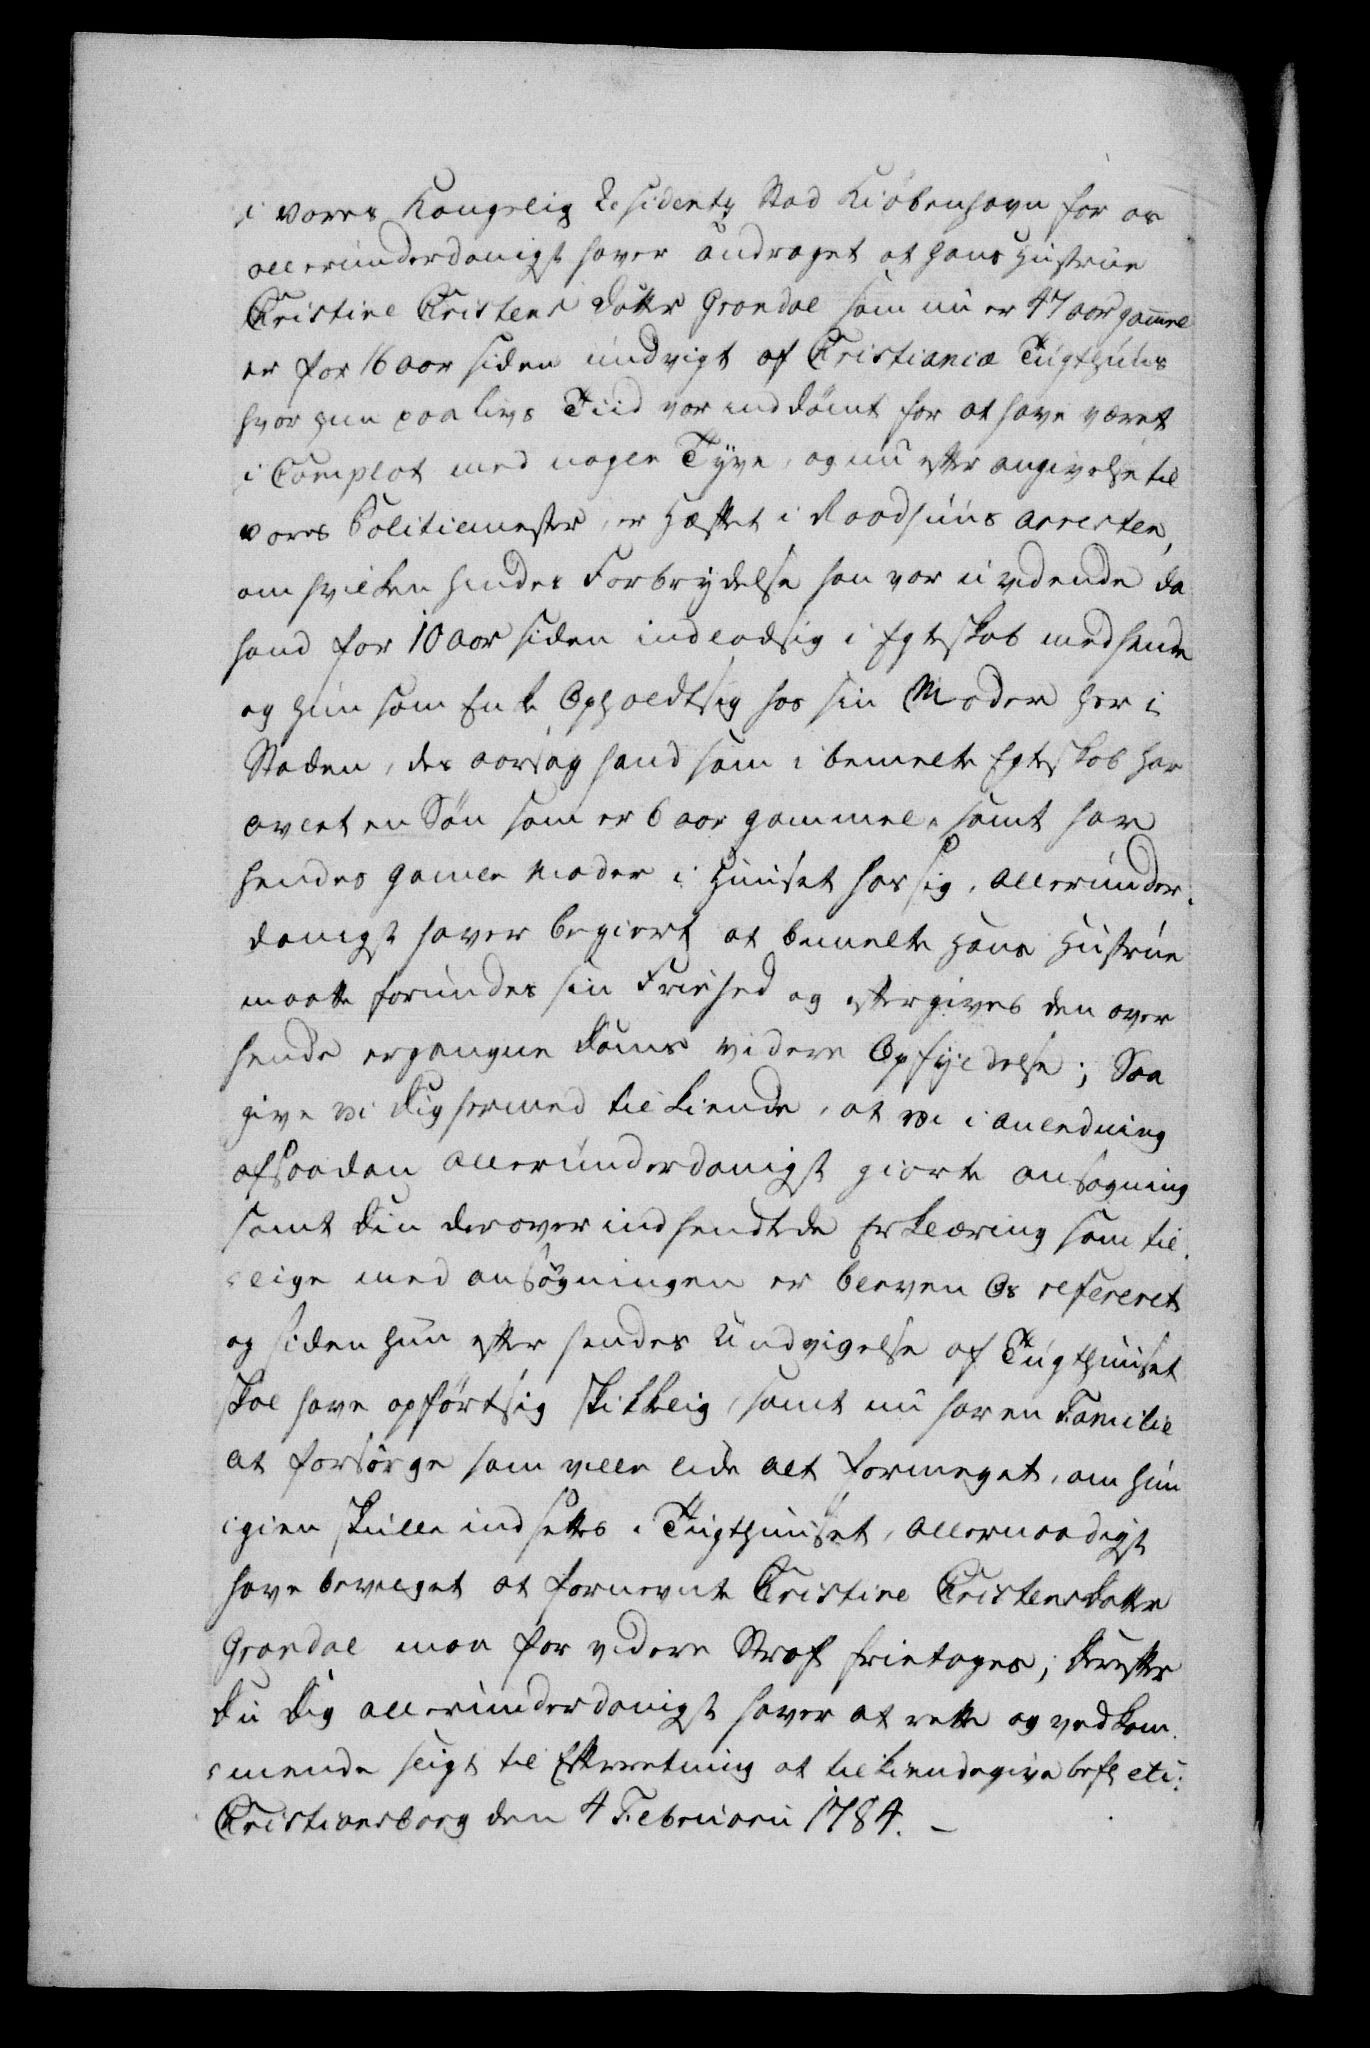 i vores Kongelig Residentz Stad Kiöbenhavn for os
allerunderdanigst haver andraget at hans Hustrue
Cristine Cristens Datter Grondal som nu er 47 aar gamel
er for 16 aar siden undvigt af Cristiania Tugthuus
hvor hun paa livs Tiid var inddömt for at have været
i Complot med nogle Tyve, og nu efter angivelse til
vores Politiemester, er Hæftet i Raadhuus arresten,
om hvilken hendes Forbrydelse han var uvidende da
hand for 10 aar siden indlod sig i Egteskab med hende
og hun som Enke Opholdt sig hos sin Moder her i
Staden, des aarsag hand som i bemelte Egteskab har
avlet en Sön som er 6 aar gammel, samt har
hendes gamle Moder i Huuset hos sig, allerunder-
danigst haver begiert at bemelte Hans Hustrue
maatte forundes sin Friehed og eftergives den over
hende ergangne Doms videre Opfyldelse; Saa
give vi Dig hermed til kiende, at vi i anledning
af saadan allerunderdanigst giorte ansøgning
samt Din derover indsendte Erklæring som til-
lige med ansögningen er bleven Os refereret
og siden hun efter hendes Undvigelse af Tugthuuset
skal have opfört sig skikkelig, samt nu har en Familie
at forsörge som ville lide alt formeget, om hun
igien skulle indsettes i Tugthuuset, allernaadigst
have bevilget at fornevnte Cristine Cristensdatter
Grondal maa for videre Straf frietages; Derefter
Du Dig allerunderdanigst haver at rette og vedkom-
mende sligt til Efterretning at tilkiendegive befl etc:
Cristiansborg den 4 Februarii 1784. –